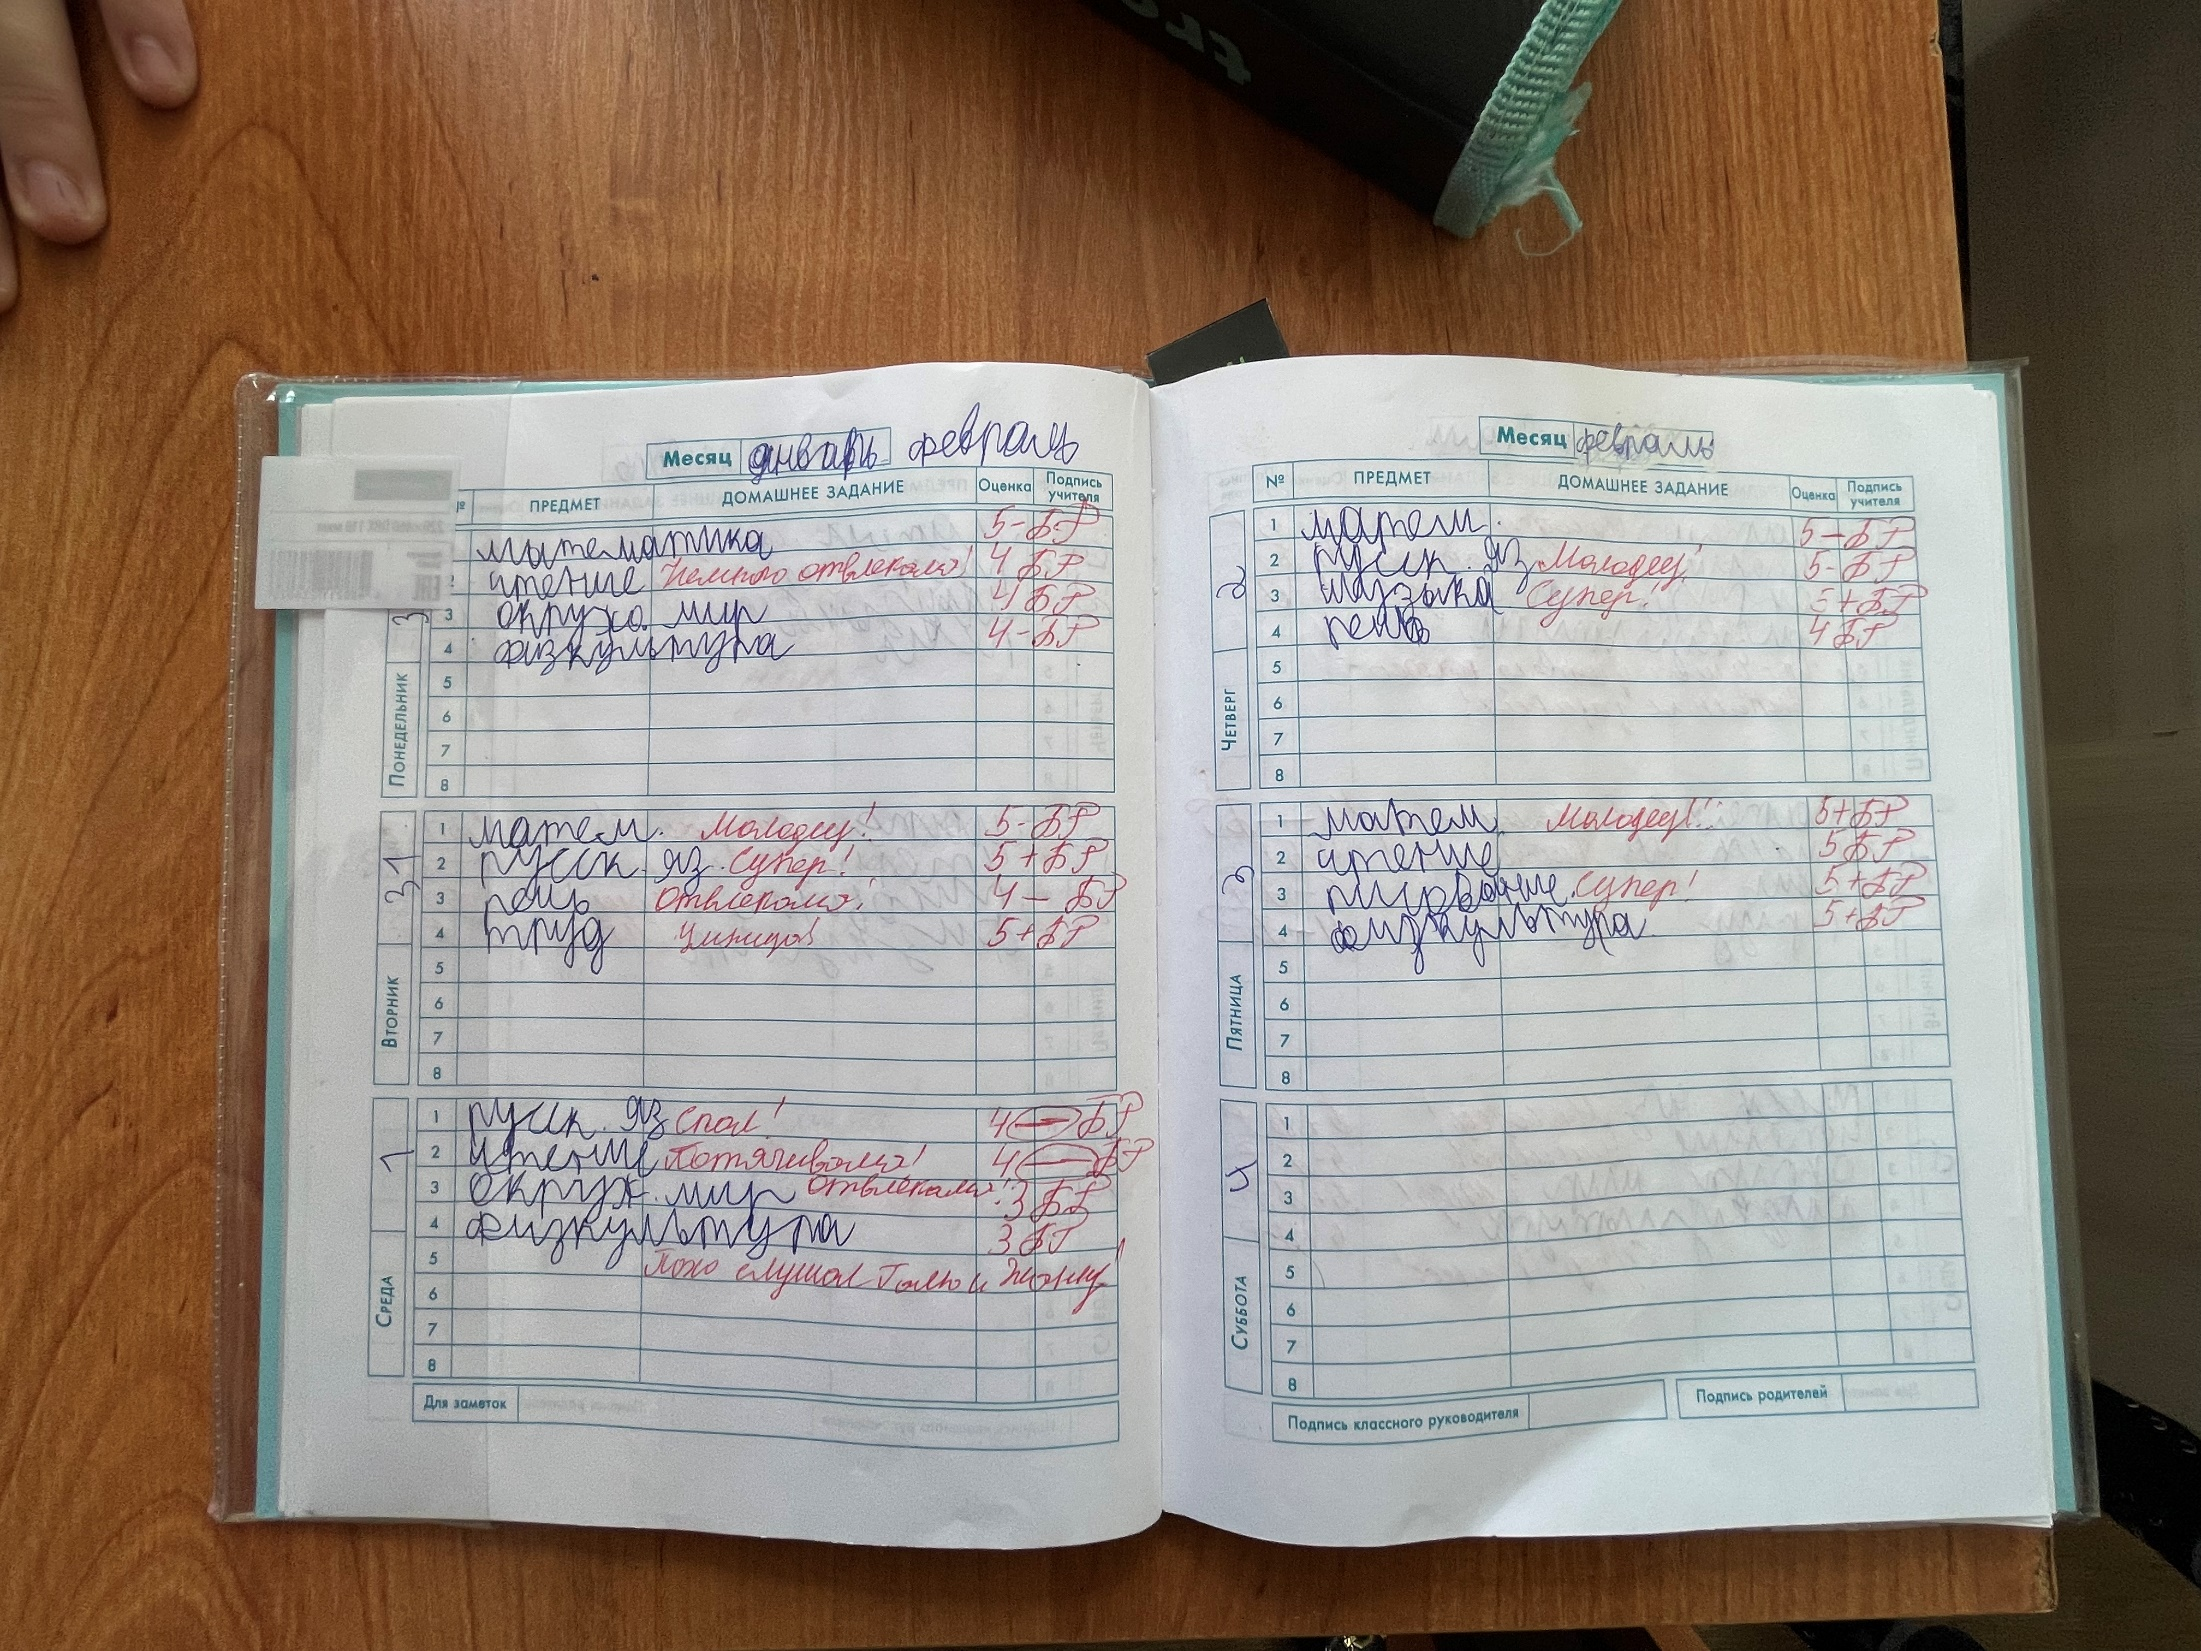 Месяц январь февраль
№ ПРЕДМЕТ ДОМАШНЕЕ ЗАДАНИЕ Оценка Подпись учителя
Понедельник
математика 5- БР
чтение Немного отвлекался! 4 БР
3 окруж. мир 4 БР
4 физкультура 4- БР
5
6
7
8
Вторник 31
1 матем. Молодец! 5- БР
2 русск. яз. Супер! 5+ БР
3 речь Отвлекался! 4- БР
4 труд Умница! 5+ БР
5
6
7
8
Среда 1
1 русск. яз Спал! 4- БР
2 чтение Потягивался! 4- БР
3 окруж. мир Отвлекался! 3 БР
4 физкультура 3 БР
5 слушал Галю и Жанну!
6
7
8
Для заметок
Месяц февраль
№ ПРЕДМЕТ ДОМАШНЕЕ ЗАДАНИЕ Оценка Подпись учителя
Четверг 2
1 матем. 5- БР
2 русск. яз Молодец! 5- БР
3 музыка Супер! 5+ БР
4 речь 4 БР
5
6
7
8
Пятница 3
1 матем. Молодец!! 5+ БР
2 чтение 5 БР
3 рисование Супер! 5+ БР
4 физкультура 5+ БР
5
6
7
8
Суббота 4
1
2
3
4
5
6
7
8
Подпись классного руководителя
Подпись родителей